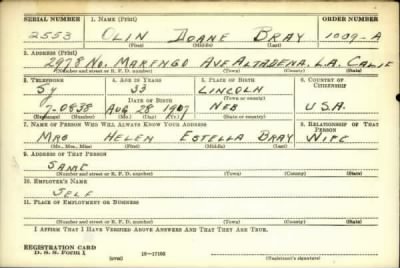 SERIAL NUMBER 1. NAME (Print) ORDER NUMBER
2553 OLIN DOANE BRAY 1009-A
(First) (Middle) (Last)
2. ADDRESS (Print)
2978 NO. MARENGO AVE ALTADENA. L.A. CALIF
(Number and street or R. F. D. number) (Town) (County) (State)
3. TELEPHONE 4. AGE IN YEARS 5. PLACE OF BIRTH 6. COUNTRY OF CITIZENSHIP
SY 33 LINCOLN
DATE OF BIRTH (Town or county)
7-0838 AUG 28 1907 NEB U.S.A.
(Exchange) (Number) (Mo.) (Day) (Yr.) (State or country)
7. NAME OF PERSON WHO WILL ALWAYS KNOW YOUR ADDRESS 8. RELATIONSHIP OF THAT PERSON
MRS HELEN ESTELLA BRAY WIFE
(Mr., Mrs., Miss) (First) (Middle) (Last)
9. ADDRESS OF THAT PERSON
SAME
(Number and street or R. F. D. number) (Town) (County) (State)
10. EMPLOYER'S NAME
SELF
11. PLACE OF EMPLOYMENT OR BUSINESS
(Number and street or R. F. D. number) (Town) (County) (State)
I AFFIRM THAT I HAVE VERIFIED ABOVE ANSWERS AND THAT THEY ARE TRUE.
REGISTRATION CARD
D. S. S. Form 1 (over) 16-17105 (Registrant's signature)